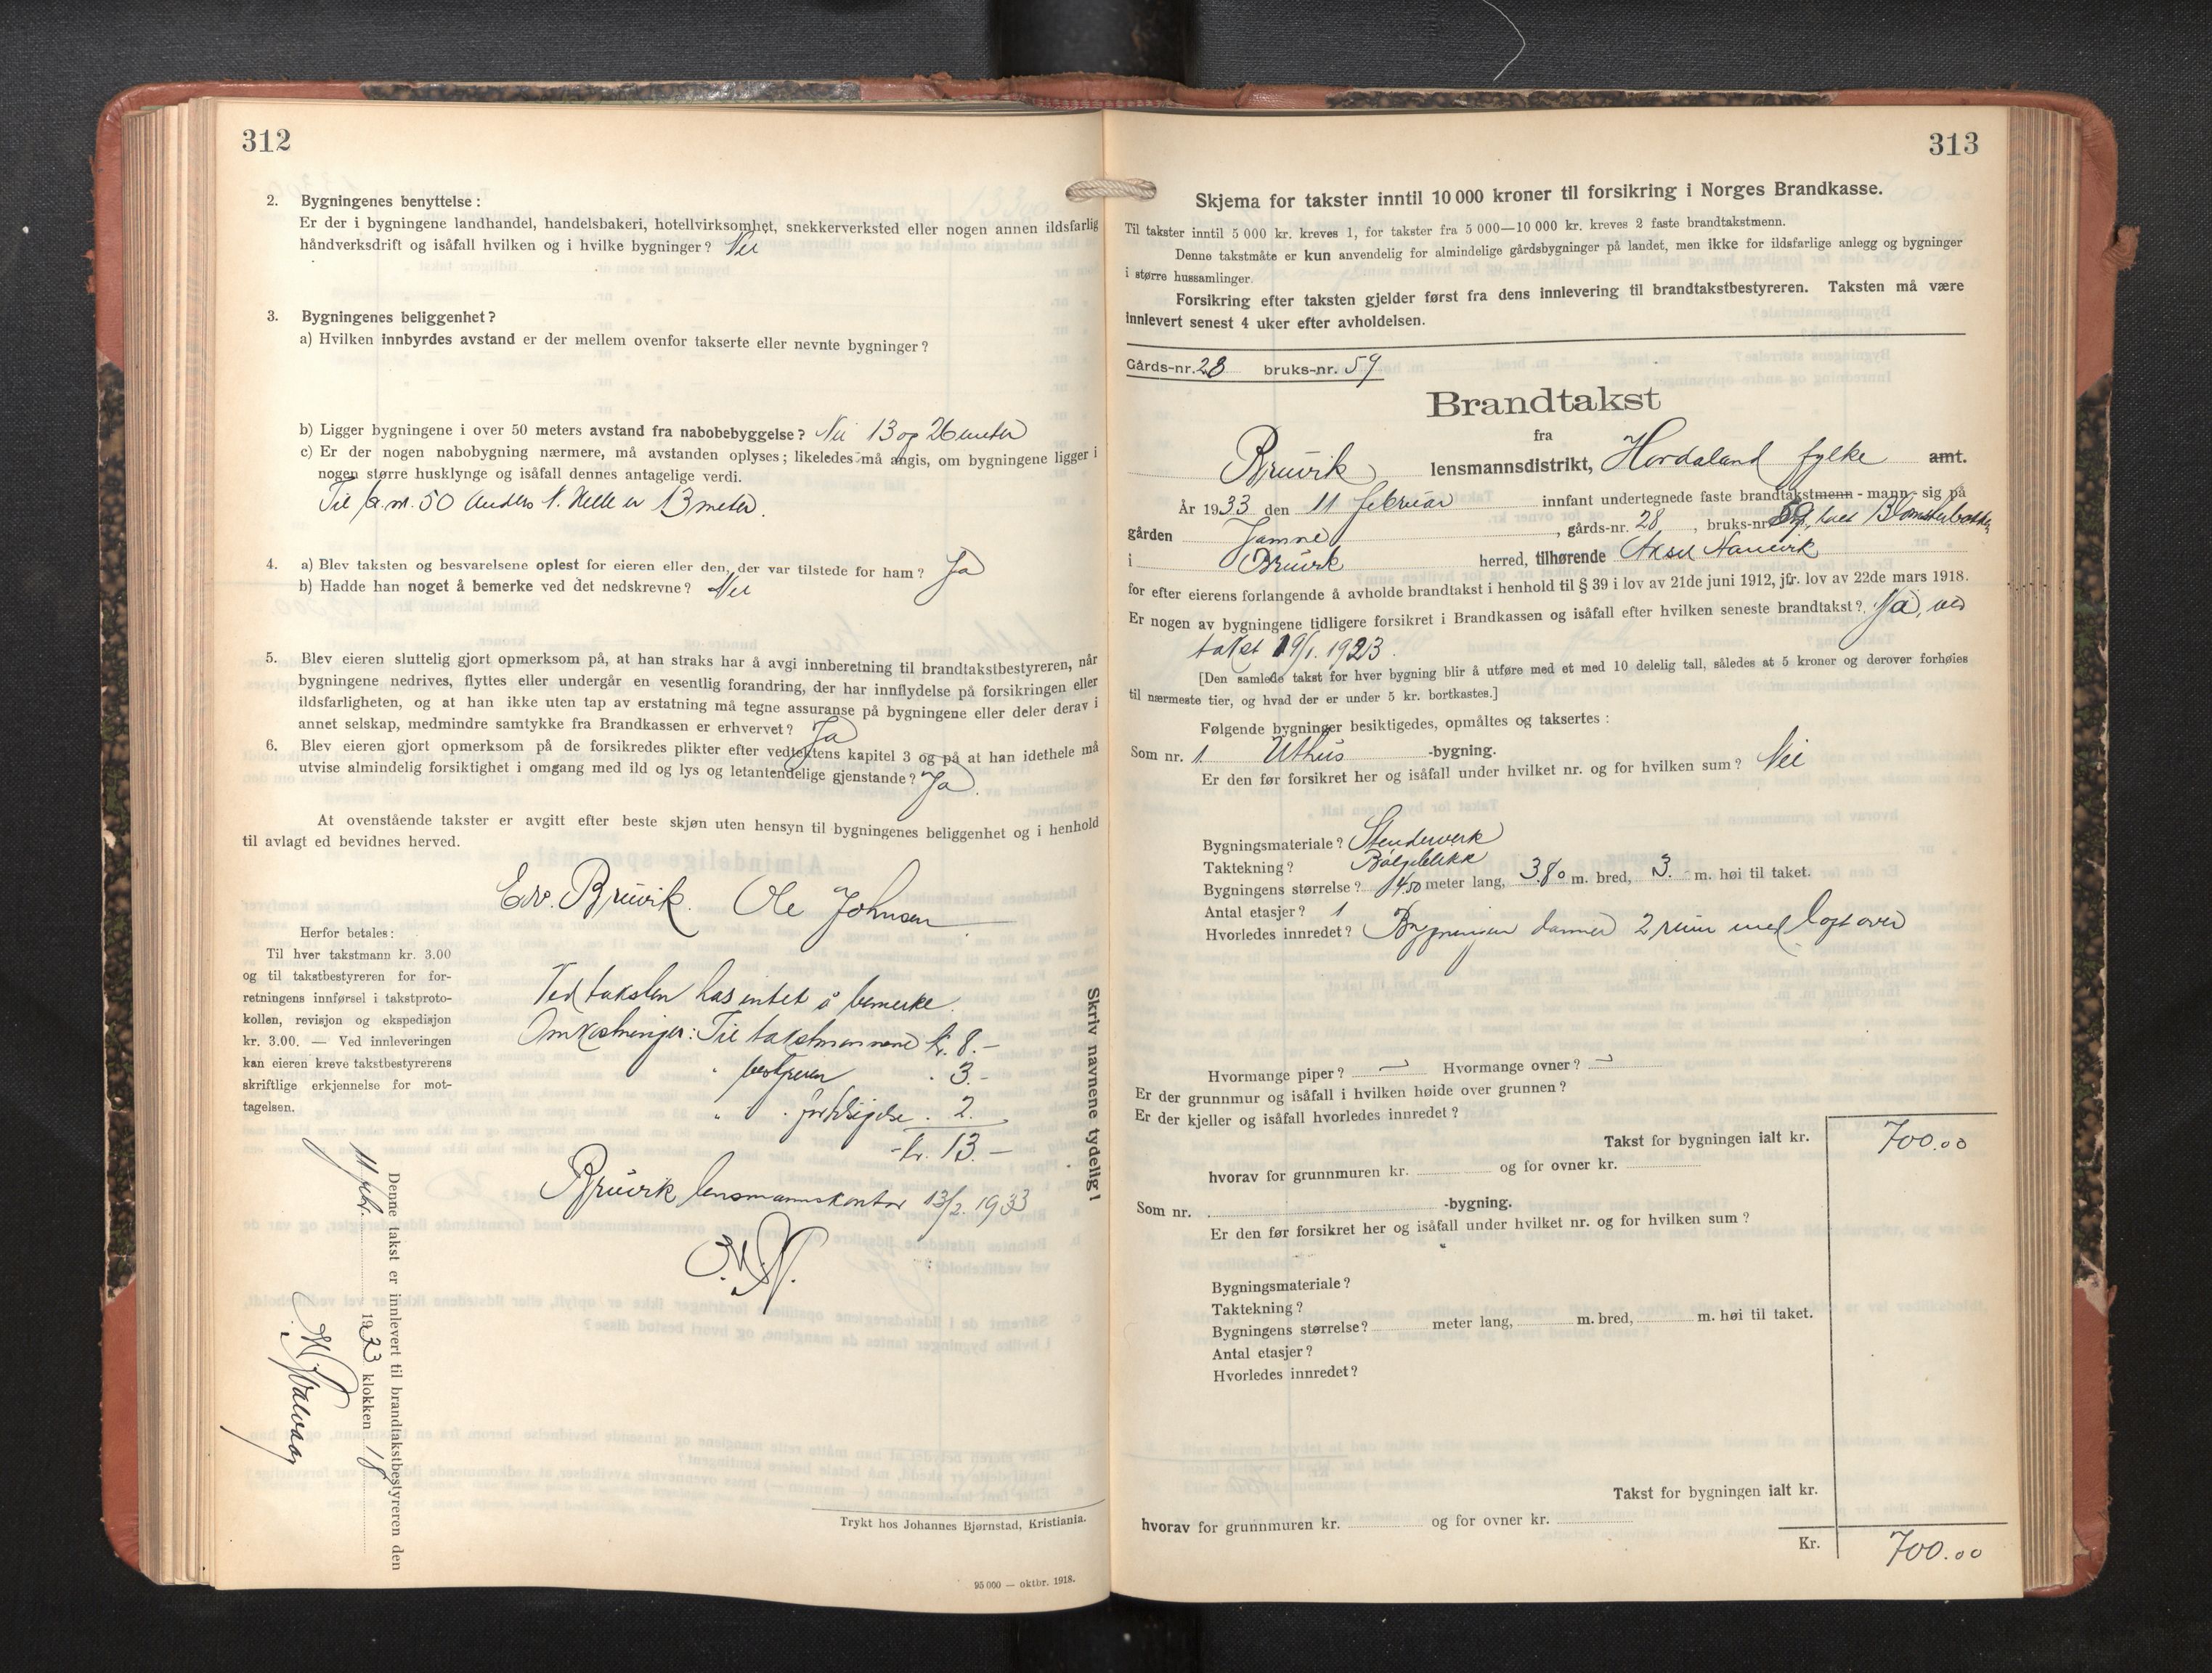 312
2. Bygningenes benyttelse:
Er der i bygningene landhandel, handelsbakeri, hotellvirksomhet, snekkerverksted eller nogen annen ildsfarlig
håndverksdrift og isåfall hvilken og i hvilke bygninger? Nei
3. Bygningenes beliggenhet?
a) Hvilken innbyrdes avstand er der mellem ovenfor takserte eller nevnte bygninger?
b) Ligger bygningene i over 50 meters avstand fra nabobebyggelse? Nei 13 og 26 meter
c) Er der nogen nabobygning nærmere, må avstanden oplyses; likeledes må angis, om bygningene ligger i
nogen større husklynge og isåfall dennes antagelige verdi.
Til br.nr. 50 Anders N. Helle er 13 meter.
4. a) Blev taksten og besvarelsene oplest for eieren eller den, der var tilstede for ham? Ja
b) Hadde han noget å bemerke ved det nedskrevne? Nei
5. Blev eieren sluttelig gjort opmerksom på, at han straks har å avgi innberetning til brandtakstbestyreren, når
bygningene nedrives, flyttes eller undergår en vesentlig forandring, der har innflydelse på forsikringen eller
ildsfarligheten, og at han ikke uten tap av erstatning må tegne assuranse på bygningene eller deler derav i
annet selskap, medmindre samtykke fra Brandkassen er erhvervet? Ja
6. Blev eieren gjort opmerksom på de forsikredes plikter efter vedtektens kapitel 3 og på at han idethele må
utvise almindelig forsiktighet i omgang med ild og lys og letantendelige gjenstande? Ja.
At ovenstående takster er avgitt efter beste skjøn uten hensyn til bygningenes beliggenhet og i henhold
til avlagt ed bevidnes herved.
Edv. Bruvik. Ole Johnsen.
Herfor betales:
Til hver takstmann kr. 3.00
og til takstbestyreren for for-
retningens innførsel i takstproto-
kollen, revisjon og ekspedisjon
kr. 3.00. — Ved innleveringen
kan eieren kreve takstbestyrerens
skriftlige erkjennelse for mot-
tagelsen.
Ved taksten has intet å bemerke.
Omkostninger: Til takstmennene kr. 8.-
" bestyreren " 3.-
" " 2.
kr. 13.-
Bruvik lensmannskontor 13/2. 1933
Skriv navnene tydelig!
Denne takst er innlevert til brandtakstbestyreren den
11 febr. 1933 klokken 18
Trykt hos Johannes Bjørnstad, Kristiania.
95 000 — oktbr. 1918.
313
Skjema for takster inntil 10 000 kroner til forsikring i Norges Brandkasse.
Til takster inntil 5 000 kr. kreves 1, for takster fra 5 000—10 000 kr. kreves 2 faste brandtakstmenn.
Denne takstmåte er kun anvendelig for almindelige gårdsbygninger på landet, men ikke for ildsfarlige anlegg og bygninger
i større hussamlinger.
Forsikring efter taksten gjelder først fra dens innlevering til brandtakstbestyreren. Taksten må være
innlevert senest 4 uker efter avholdelsen.
Gårds-nr. 28 bruks-nr. 59
Brandtakst
fra
Bruvik lensmannsdistrikt, Hordaland fylke amt.
År 1933 den 11 februar innfant undertegnede faste brandtakstmenn - mann - sig på
gården Jamne, gårds-nr. 28, bruks-nr. 59,
i Bruvik herred, tilhørende Aksel
for efter eierens forlangende å avholde brandtakst i henhold til § 39 i lov av 21de juni 1912, jfr. lov av 22de mars 1918.
Er nogen av bygningene tidligere forsikret i Brandkassen og isåfall efter hvilken seneste brandtakst? Ja, ved
takst 19/1. 1923.
[Den samlede takst for hver bygning blir å utføre med et med 10 delelig tall, således at 5 kroner og derover forhøies
til nærmeste tier, og hvad der er under 5 kr. bortkastes.]
Følgende bygninger besiktigedes, opmåltes og taksertes:
Som nr. 1 Uthus -bygning.
Er den før forsikret her og isåfall under hvilket nr. og for hvilken sum? Nei
Bygningsmateriale? Stenderverk
Taktekning? Bølgeblikk
Bygningens størrelse? 14.50 meter lang, 3.80 m. bred, 3.- m. høi til taket.
Antal etasjer? 1
Hvorledes innredet? Bygningen danner 2 rum med loft over
Hvormange piper? — Hvormange ovner? —
Er der grunnmur og isåfall i hvilken høide over grunnen?
Er der kjeller og isåfall hvorledes innredet?
Takst for bygningen ialt kr. 700.00
hvorav for grunnmuren kr. og for ovner kr.
Som nr. -bygning.
Er den før forsikret her og isåfall under hvilket nr. og for hvilken sum?
Bygningsmateriale?
Taktekning?
Bygningens størrelse? meter lang, m. bred, m. høi til taket.
Antal etasjer?
Hvorledes innredet?
Takst for bygningen ialt kr.
hvorav for grunnmuren kr. og for ovner kr.
Kr. 700.00